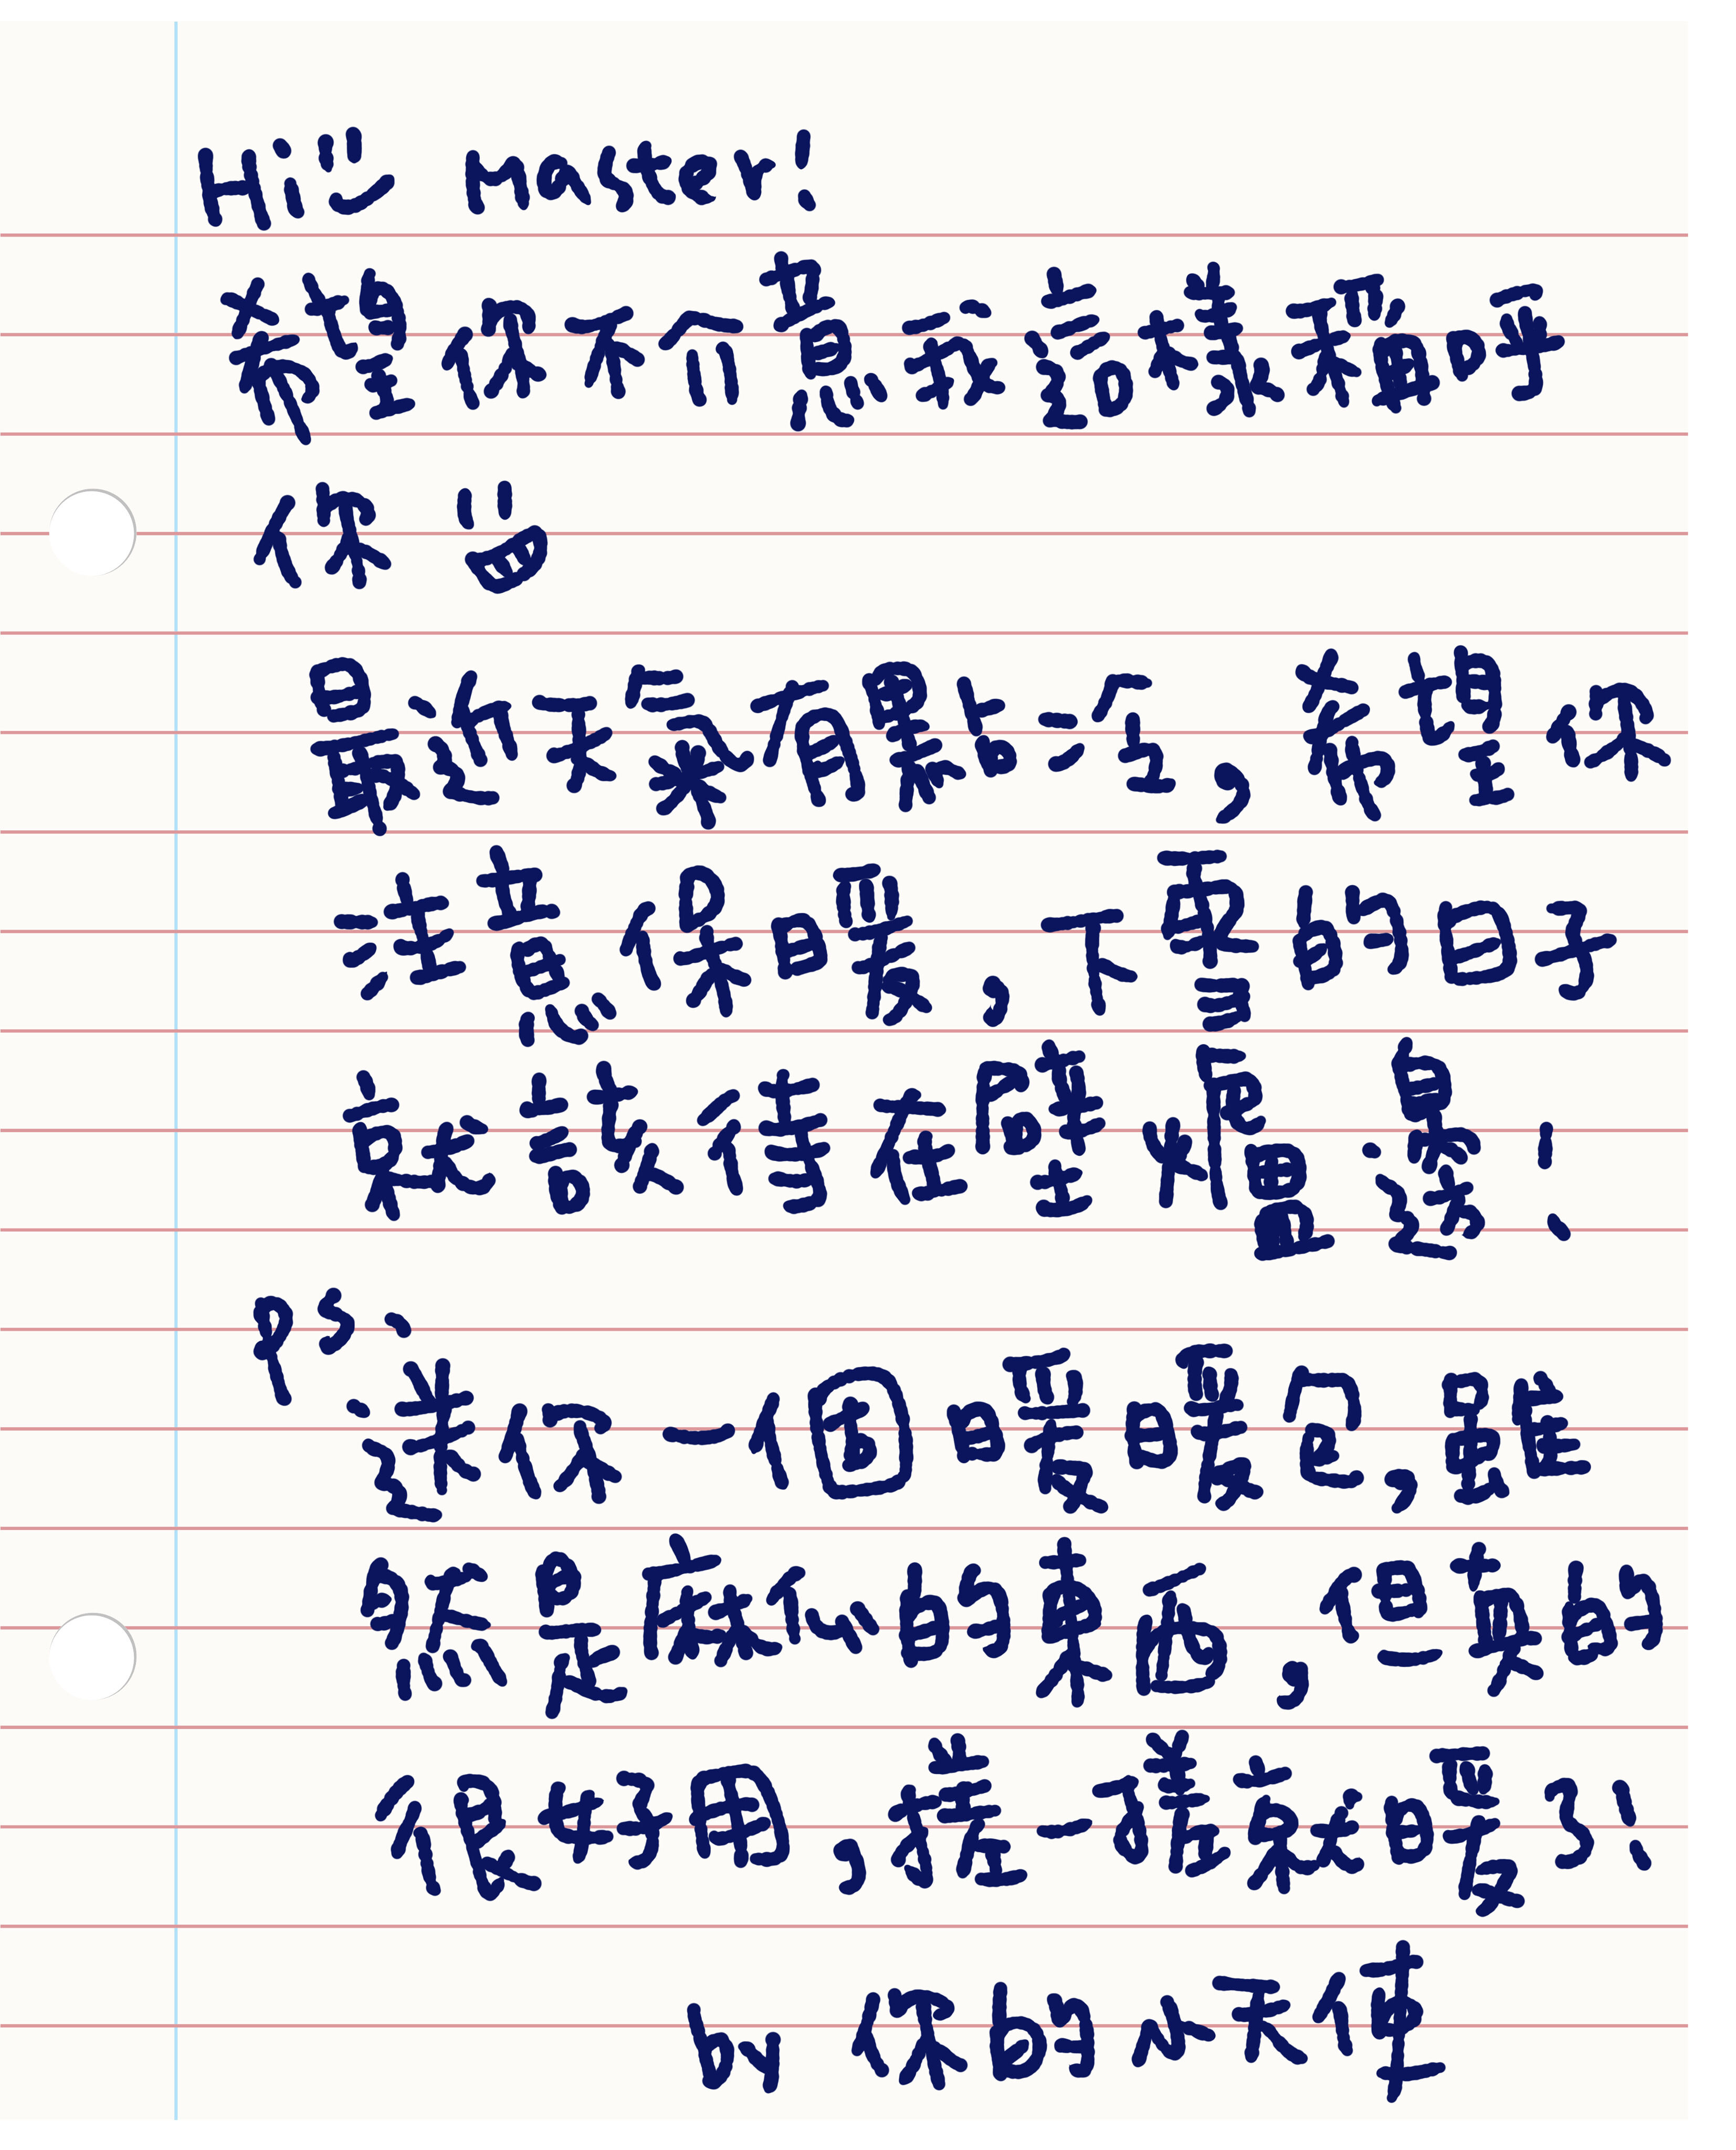 Hi Master!
希望你不介意我這樣稱呼
你
最近天氣有點冷，希望你
注意保暖，下雨的日子
就該待在被窩還是
PS.
送你一個暖暖包，雖
然是麻煩的東西，但真的
很好用，搓一搓就暖了！
by 你的小天使